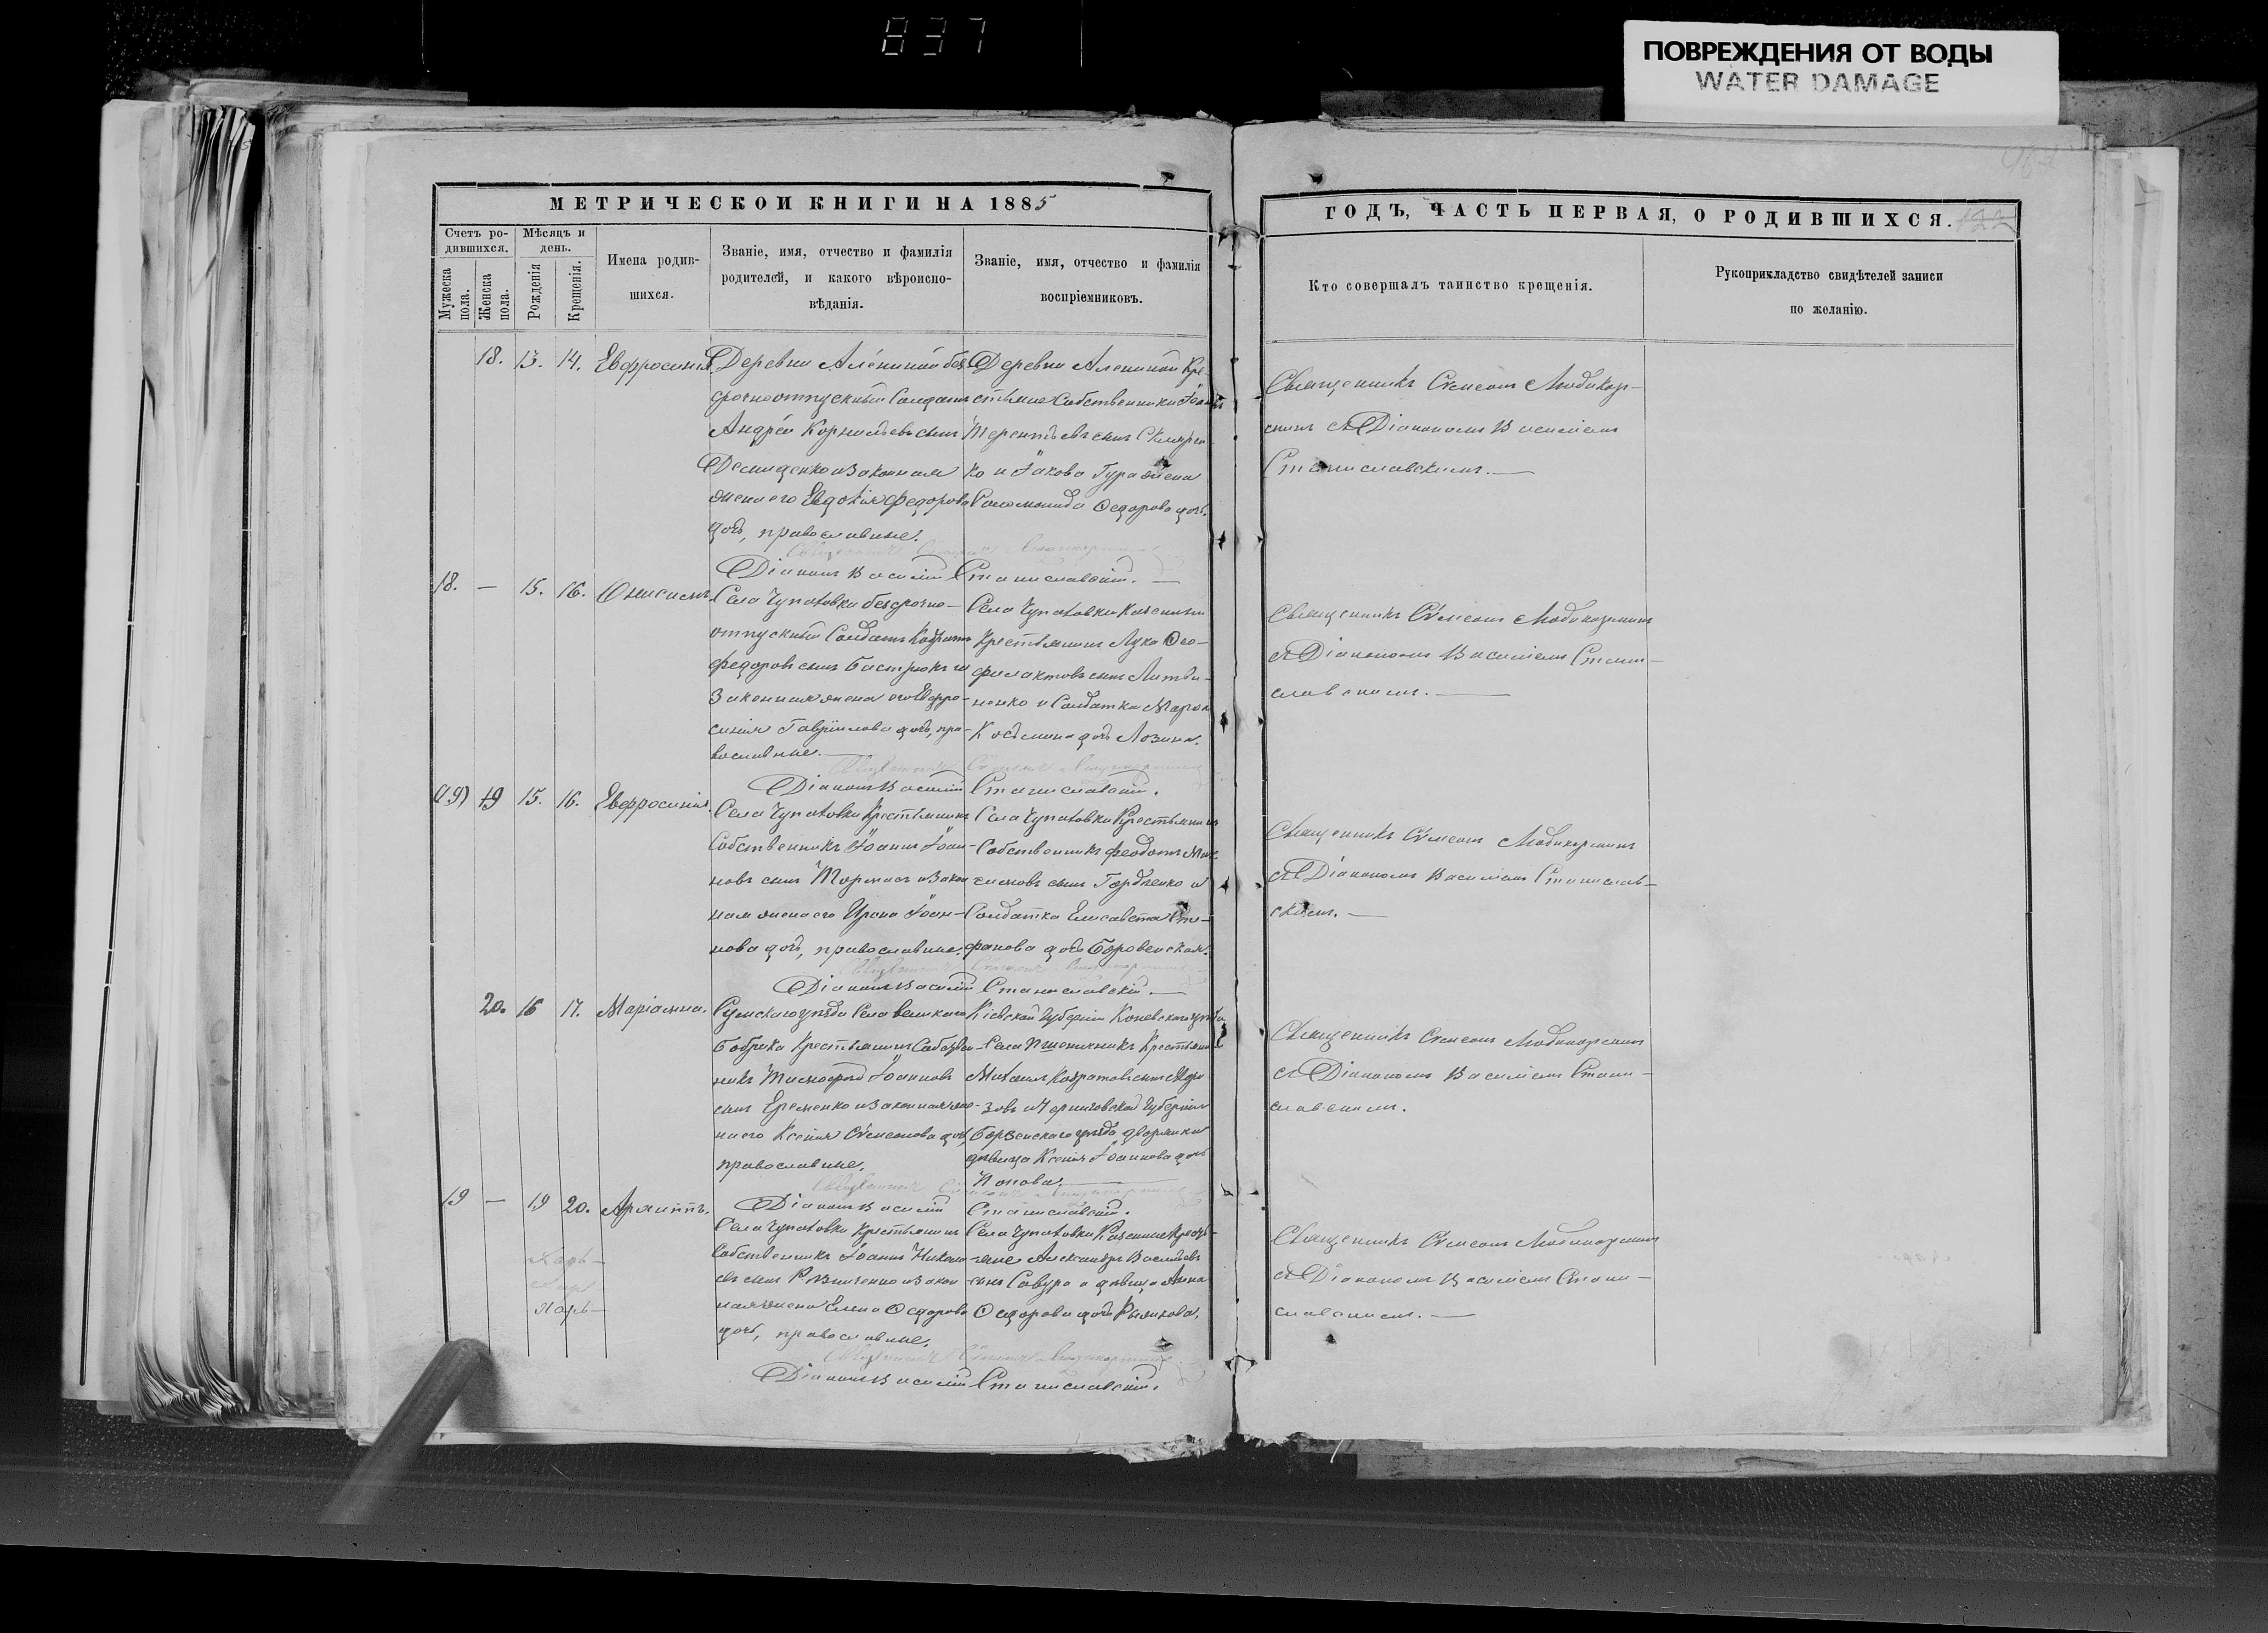 837
ПОВРЕЖДЕНИЯ ОТ ВОДЫ
WATER DAMAGE
МЕТРИЧЕСКОИ КНИГИ НА 1885
Счетъ ро-
дившихся.
Мужеска
пола.
Женска
пола.
Мѣсяцъ и
день.
Рожденія
Крещенія.
Имена родив-
шихся.
Званіе, имя, отчество и фамилія
родителей, и какого вѣроиспо-
вѣданія.
Званіе, имя, отчество и фамилія
воспріемниковъ.
18. 13. 14. Евфросинія.
Деревни Алениной без
срочноотпускный Солдатъ
Андрей Корнильевъ сынъ
Демиденко и законная
жена его Евдокія Федорова
дочь, православные.
Деревни Алениной Кре-
стьяне Собственники Іоаннъ
Терентьевъ сынъ Скляре
ко и Іакова Гура жена
Соломонида Ѳедорова дочь.
Діаконъ Василій Станиславскій.
18. — 15. 16. Онисимъ.
Села Чупаховки безсрочно-
отпускный Солдатъ Кодратъ
Федоровъ сынъ Бастрюкъ и
Законная жена его Евфро-
синія Гавріилова дочь, пра-
вославные.
Села Чупаховки Казенный
Крестьянинъ Лука Ѳео-
филактовъ сынъ Литви-
ненко и Солдатка Марѳа
Косьмина дочь Лозина.
Діаконъ Василій Станиславскій.
(19) 19 15. 16. Евфросинія.
Села Чупаховки Крестьянинъ
Собственникъ Іоаннъ Іоан-
новъ сынъ и закон
ная жена его Ирина Іоан-
нова дочь, православные.
Села Чупаховки Крестьянинъ
Собственникъ Феодотъ Мак-
симовъ сынъ Гордіенко и
Солдатка Елисавета Сте-
фанова дочь Боровенская.
Діаконъ Василій Станиславскій.
20. 16 17. Маріамна.
Сумскаго уѣзда Села Великаго
Бобрика Крестьянинъ Собствен-
никъ Тимофей Іоанновъ
сынъ Еременко и законная же-
на его Ксенія Симеонова дочь,
православные.
Кіевской Губерніи Каневскаго уѣзда
Села Пшеничникъ Крестьянинъ
Михаилъ Кодратовъ сынъ Моро
зовъ и Черниговской Губерніи
Борзенскаго уѣзда дворянка
дѣвица Ксенія Іоаннова дочь
Попова.
Діаконъ Василій Станиславскій.
19 — 19 20. Архиппъ.
Села Чупаховки Крестьянинъ
Собственникъ Іоаннъ Никола
евъ сынъ Резниченко и закон
ная жена Елена Ѳедорова
дочь, православные.
Села Чупаховки Казенные Кресть-
яне Александръ Васильевъ
сынъ Савура и дѣвица Анна
Ѳедорова дочь Рыжкова.
Харь-
Харь-
Діаконъ Василій Станиславскій.
ГОДЪ, ЧАСТЬ ПЕРВАЯ, О РОДИВШИХСЯ. 122
Кто совершалъ таинство крещенія.
Рукоприкладство свидѣтелей записи
по желанію.
Священникъ Сѵмеонъ Любикор-
скинъ съ Діакономъ Василіемъ
Станиславскимъ.
Священникъ Сѵмеонъ
съ Діакономъ Василіемъ Стани-
славскимъ.
Священникъ Сѵмеонъ
съ Діакономъ Василіемъ Станислав-
скимъ.
Священникъ Сѵмеонъ
съ Діакономъ Василіемъ Стани-
славскимъ.
Священникъ Сѵмеонъ
съ Діакономъ Василіемъ Стани-
славскимъ.